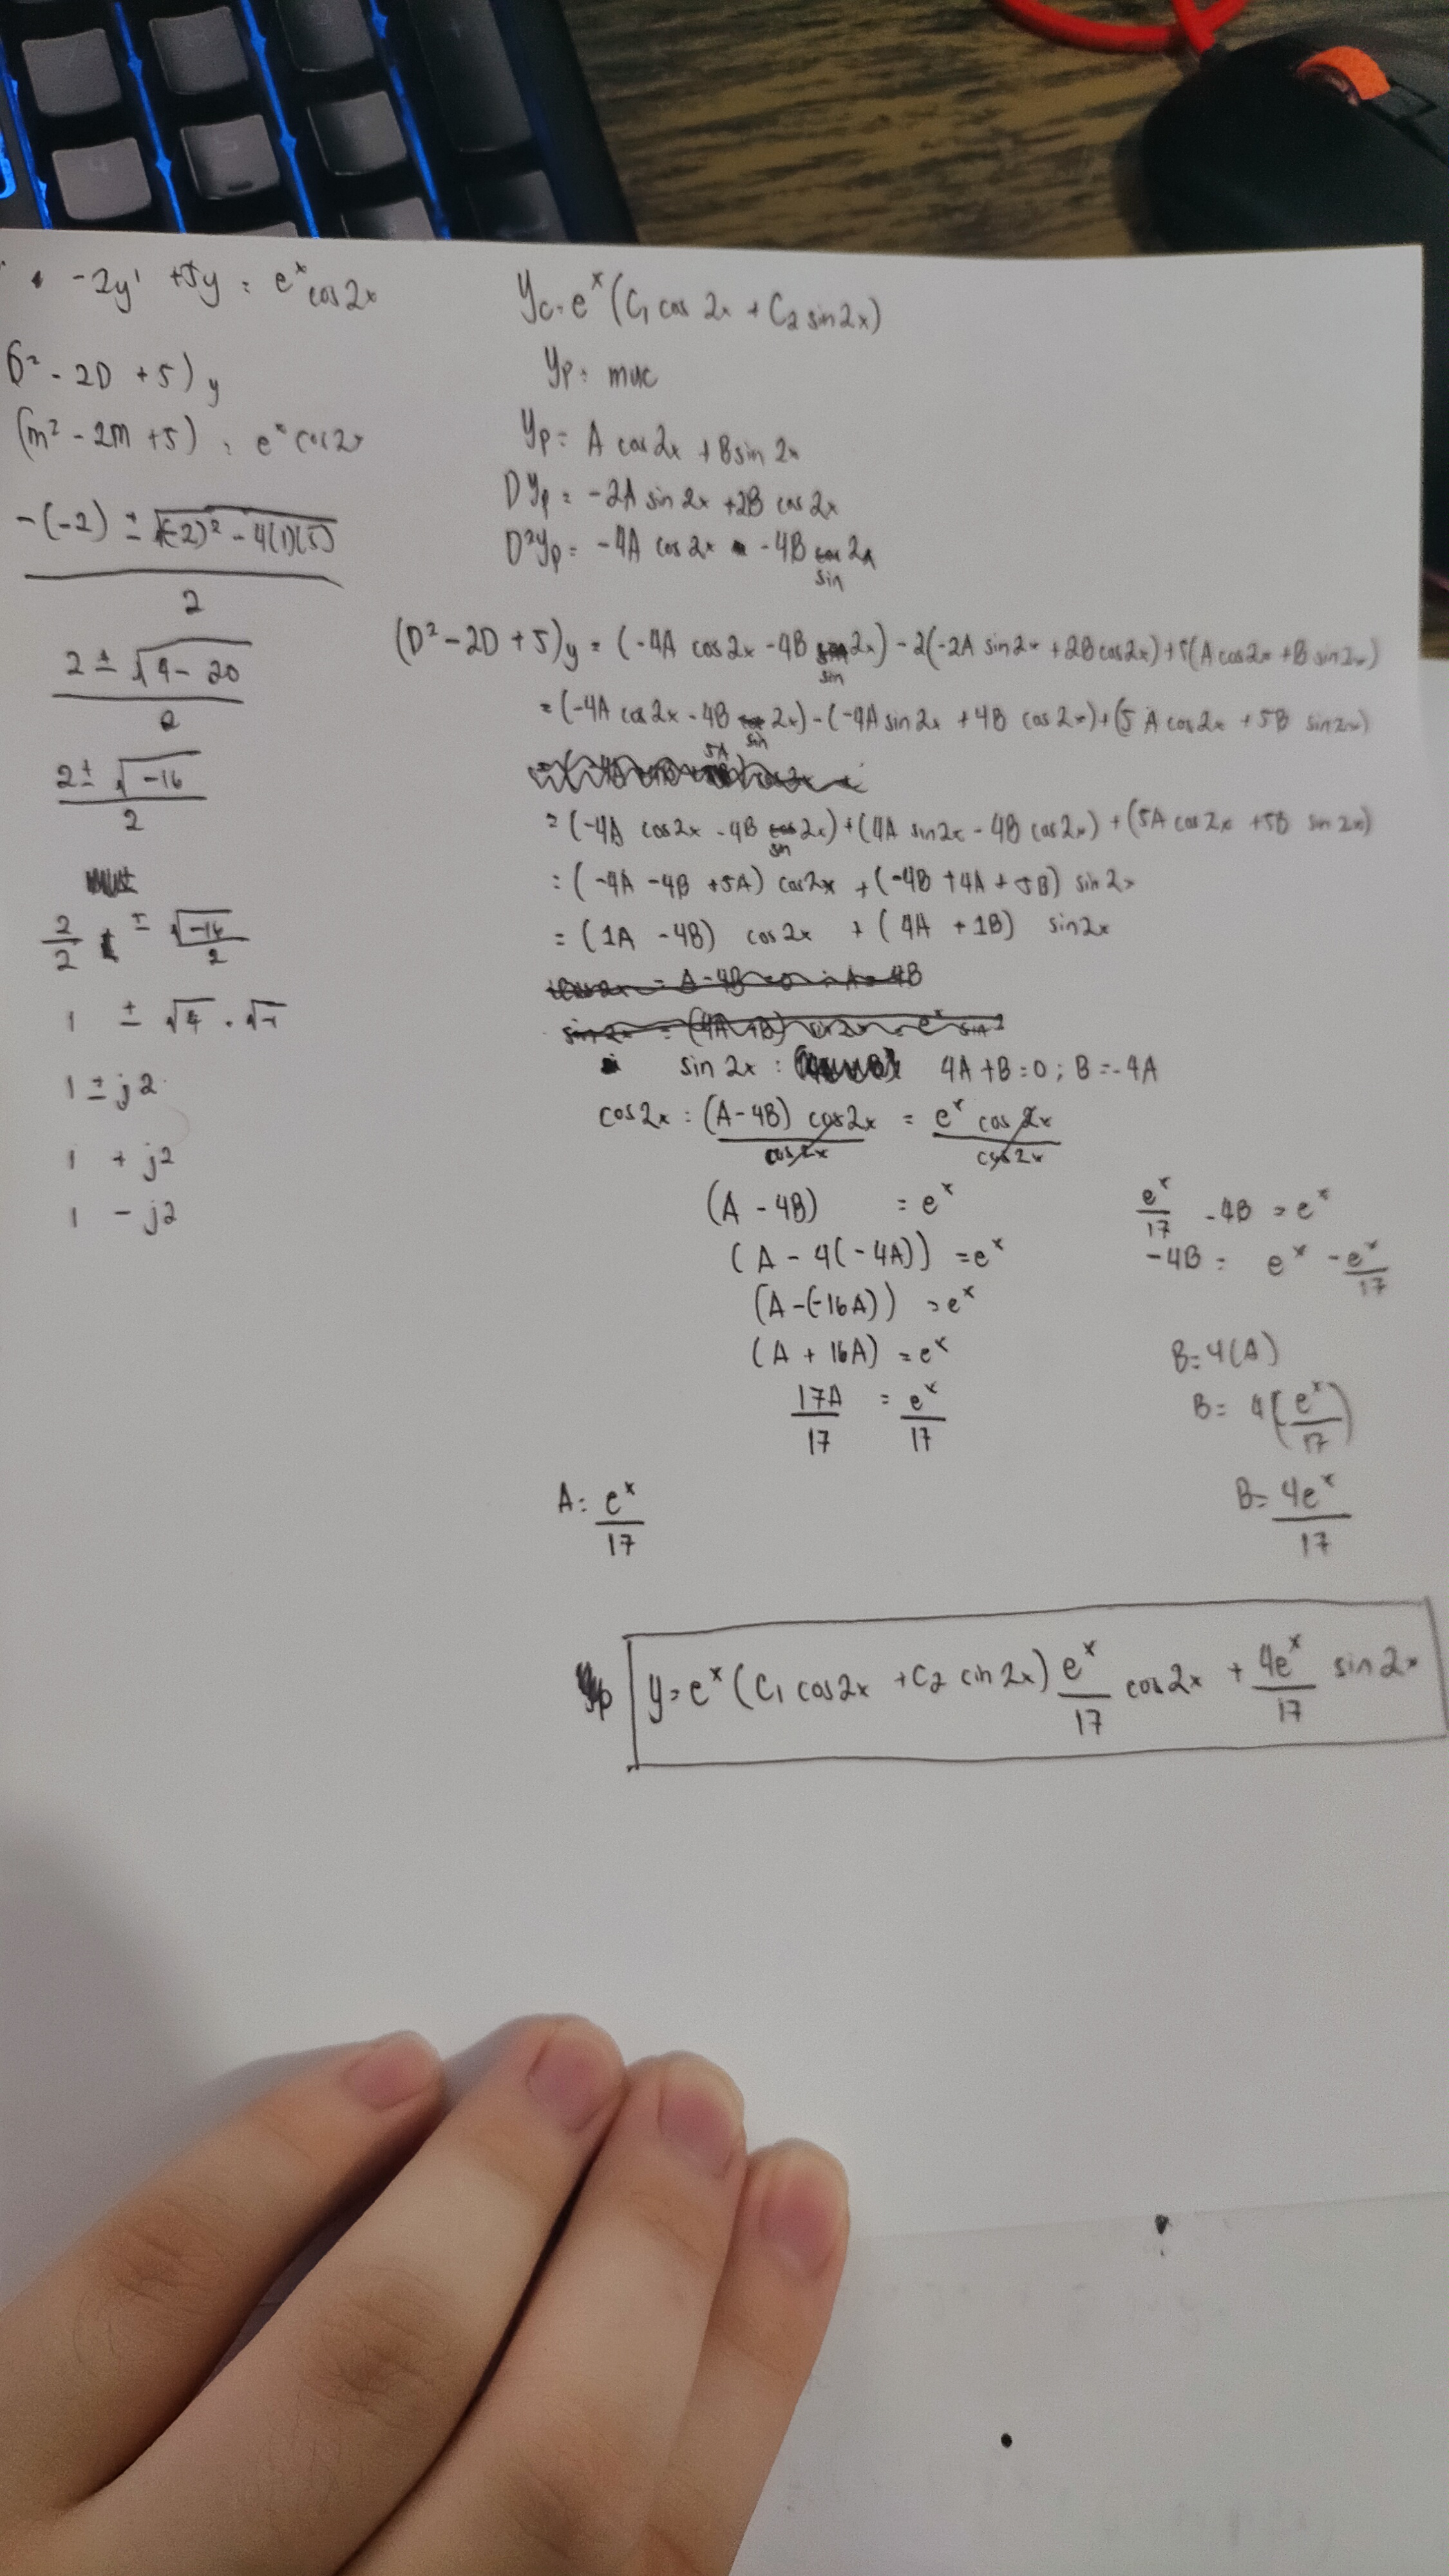 -2y' +5y = e^x cos 2x
(D² - 2D + 5) y
(m² - 2m + 5) = e^x cos 2x
-(-2) ± √(-2)² - 4(1)(5)
2
2 ± √4 - 20
2
2 ± √-16
2
2/2 ± √-16/2
1 ± √4 . √-1
1 ± j2
1 + j2
1 - j2
yc = e^x (C1 cos 2x + C2 sin 2x)
yp = muc
yp = A cos 2x + B sin 2x
Dyp = -2A sin 2x + 2B cos 2x
D²yp = -4A cos 2x - 4B sin 2x
(D² - 2D + 5)y = (-4A cos 2x - 4B sin 2x) - 2(-2A sin 2x + 2B cos 2x) + 5(A cos 2x + B sin 2x)
= (-4A cos 2x - 4B sin 2x) - (-4A sin 2x + 4B cos 2x) + (5A cos 2x + 5B sin 2x)
= (-4A cos 2x - 4B sin 2x) + (4A sin 2x - 4B cos 2x) + (5A cos 2x + 5B sin 2x)
= (-4A - 4B + 5A) cos 2x + (-4B + 4A + 5B) sin 2x
= (1A - 4B) cos 2x + (4A + 1B) sin 2x
sin 2x : 4A + B = 0 ; B = -4A
cos 2x : (A - 4B) cos 2x / cos 2x = e^x cos 2x / cos 2x
(A - 4B) = e^x
(A - 4(-4A)) = e^x
(A - (-16A)) = e^x
(A + 16A) = e^x
17A/17 = e^x/17
A = e^x/17
e^x/17 - 4B = e^x
-4B = e^x - e^x/17
B = 4(A)
B = 4(e^x/17)
B = 4e^x/17
y = e^x (C1 cos 2x + C2 sin 2x) e^x/17 cos 2x + 4e^x/17 sin 2x